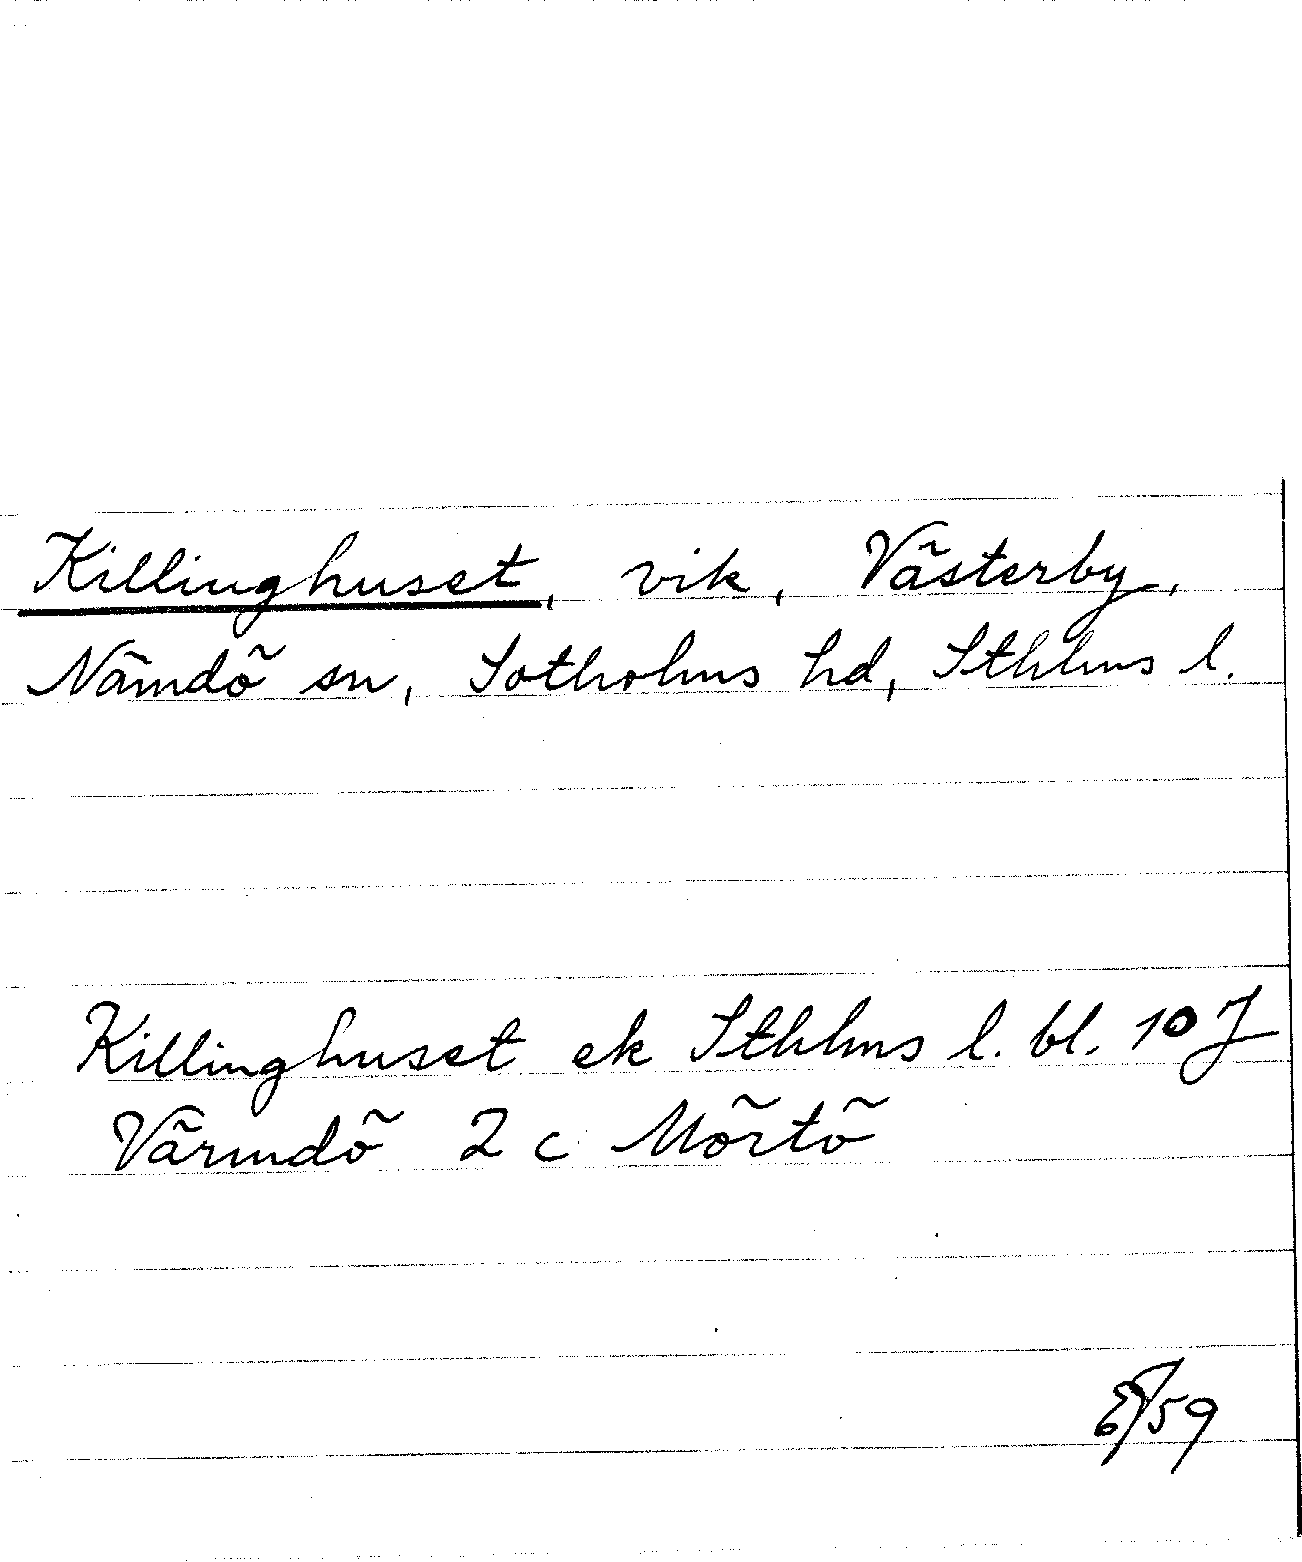 Killinghuset, vik, Västerby,
Nämdö sn, Sotholms hd, Sthlms l.
Killinghuset ek Sthlms l. bl. 10 J
Värmdö 2 c Mörtö
/59